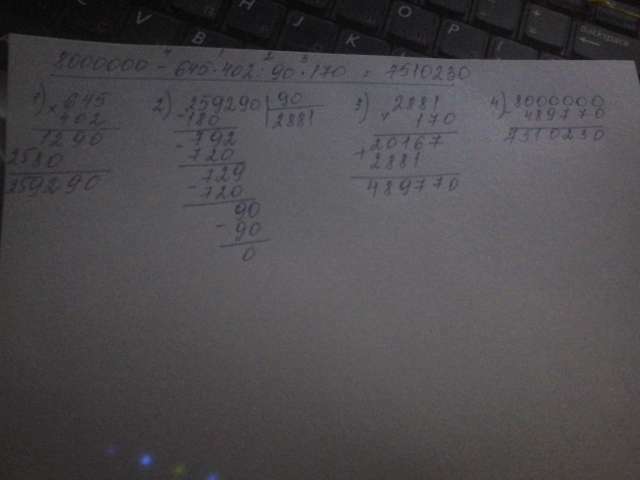 8000000 - 645 · 402 : 90 · 170 = 7510230
4 1 2 3
1) 645
× 402
1290
2580
259290
2) 259290 90
- 180 2881
- 792
720
- 729
720
90
- 90
0
3) 2881
× 170
20167
+ 2881
489770
4) 8000000
- 489770
7510230